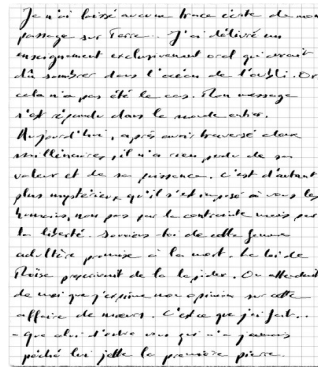 Je n'ai laissé aucune trace écrite de mon
passage sur Terre. J'ai délivré un
enseignement exclusivement oral qui aurait
dû sombrer dans l'océan de l'oubli. Or
cela n'a pas été le cas. Mon message
s'est répandu dans le monde entier.
Aujourd'hui, après avoir traversé deux
millénaires, il n'a rien perdu de sa
valeur et de sa puissance. C'est d'autant
plus mystérieux qu'il s'est imposé à vous les
humains, non pas par la contrainte mais par
la liberté. Souviens-toi de cette femme
adultère promise à la mort. La loi de
Moïse prescrivait de la lapider. On attendait
de moi que j'exprime mon opinion sur cette
affaire de mœurs. C'est ce que j'ai fait.
- que celui d'entre vous qui n'a jamais
péché lui jette la première pierre.